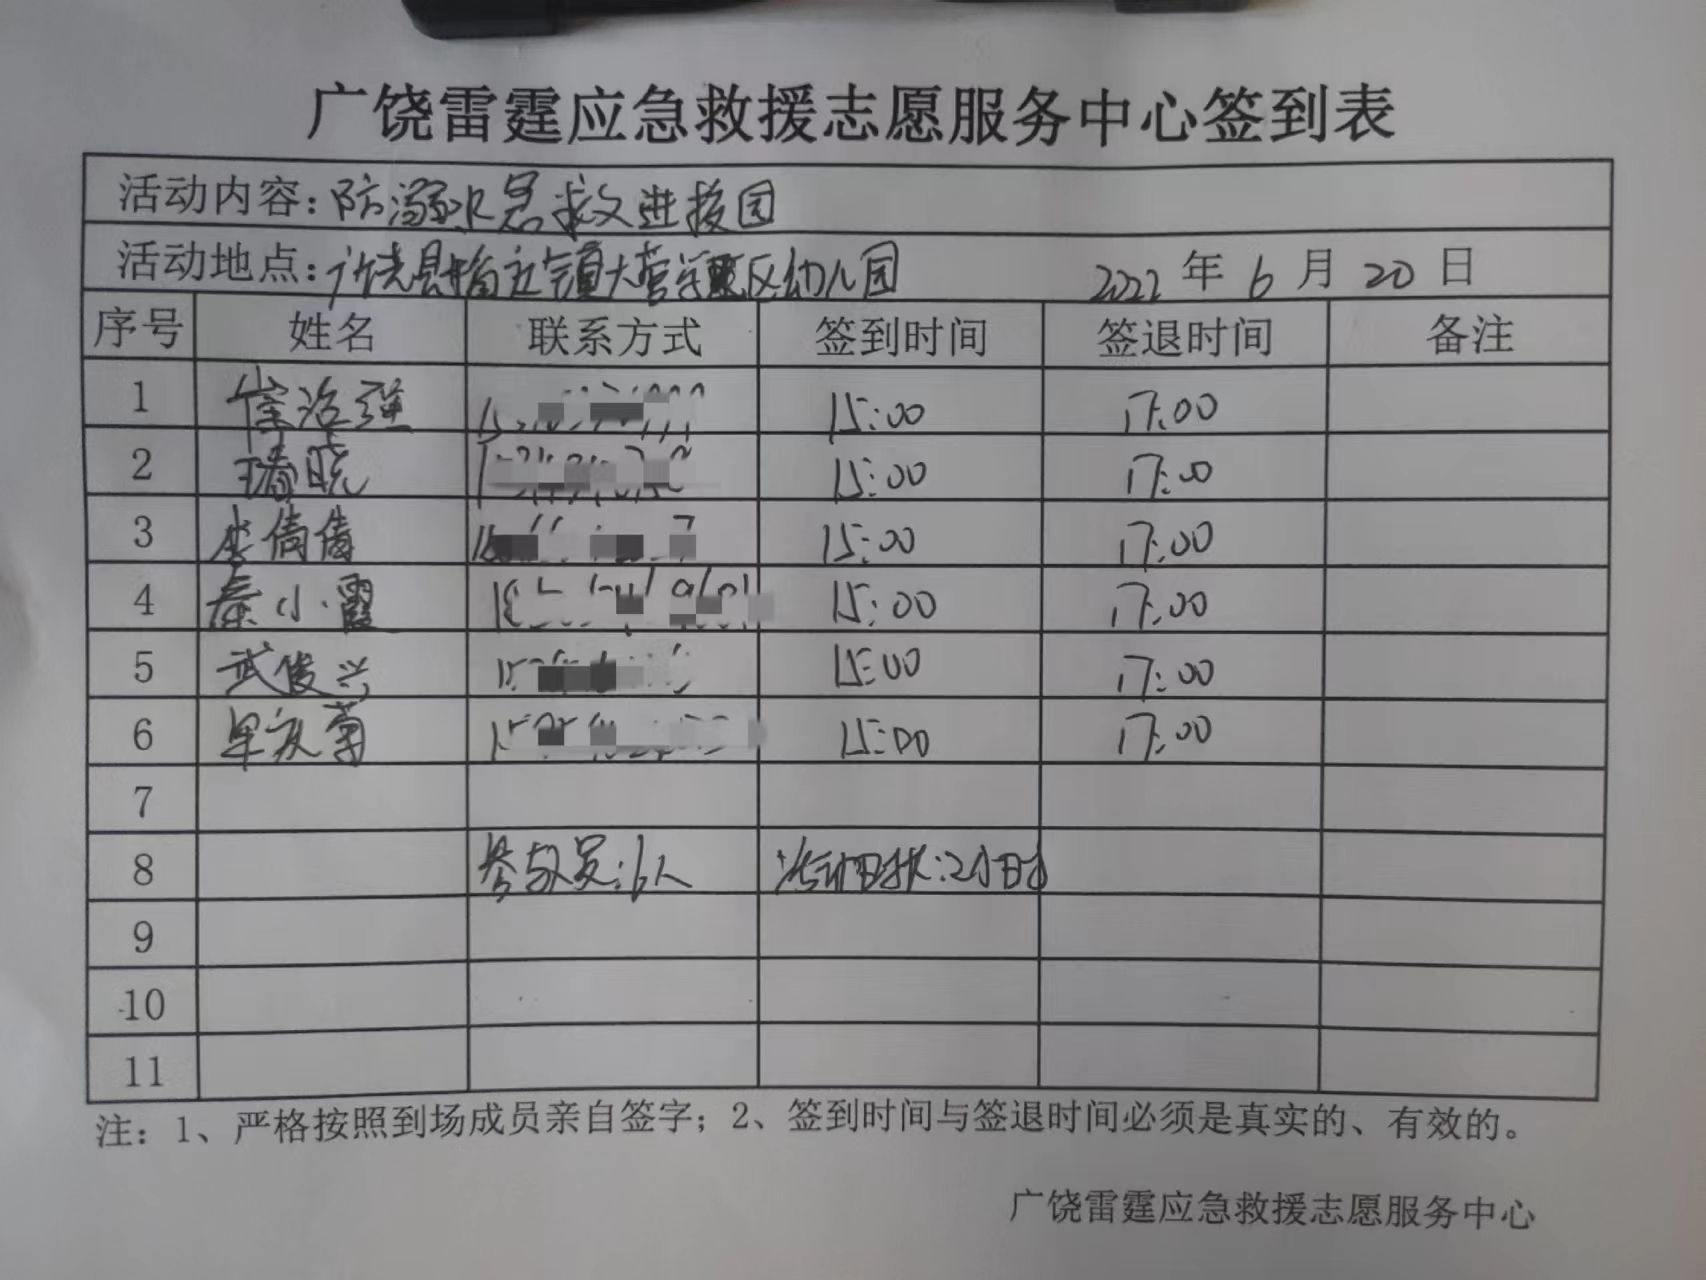 广饶雷霆应急救援志愿服务中心签到表
活动内容：防溺水急救进校园
活动地点：广饶县稻庄镇大营学区幼儿园 2022年6月20日
序号 姓名 联系方式 签到时间 签退时间 备注
1 崔治强 15:00 17:00
2 晓 15:00 17:00
3 李倩倩 15:00 17:00
4 秦小霞 15:00 17:00
5 武俊兴 15:00 17:00
6 菊 15:00 17:00
7
8 参与人员：6人 活动时长：2小时
9
10
11
注：1、严格按照到场成员亲自签字；2、签到时间与签退时间必须是真实的、有效的。
广饶雷霆应急救援志愿服务中心